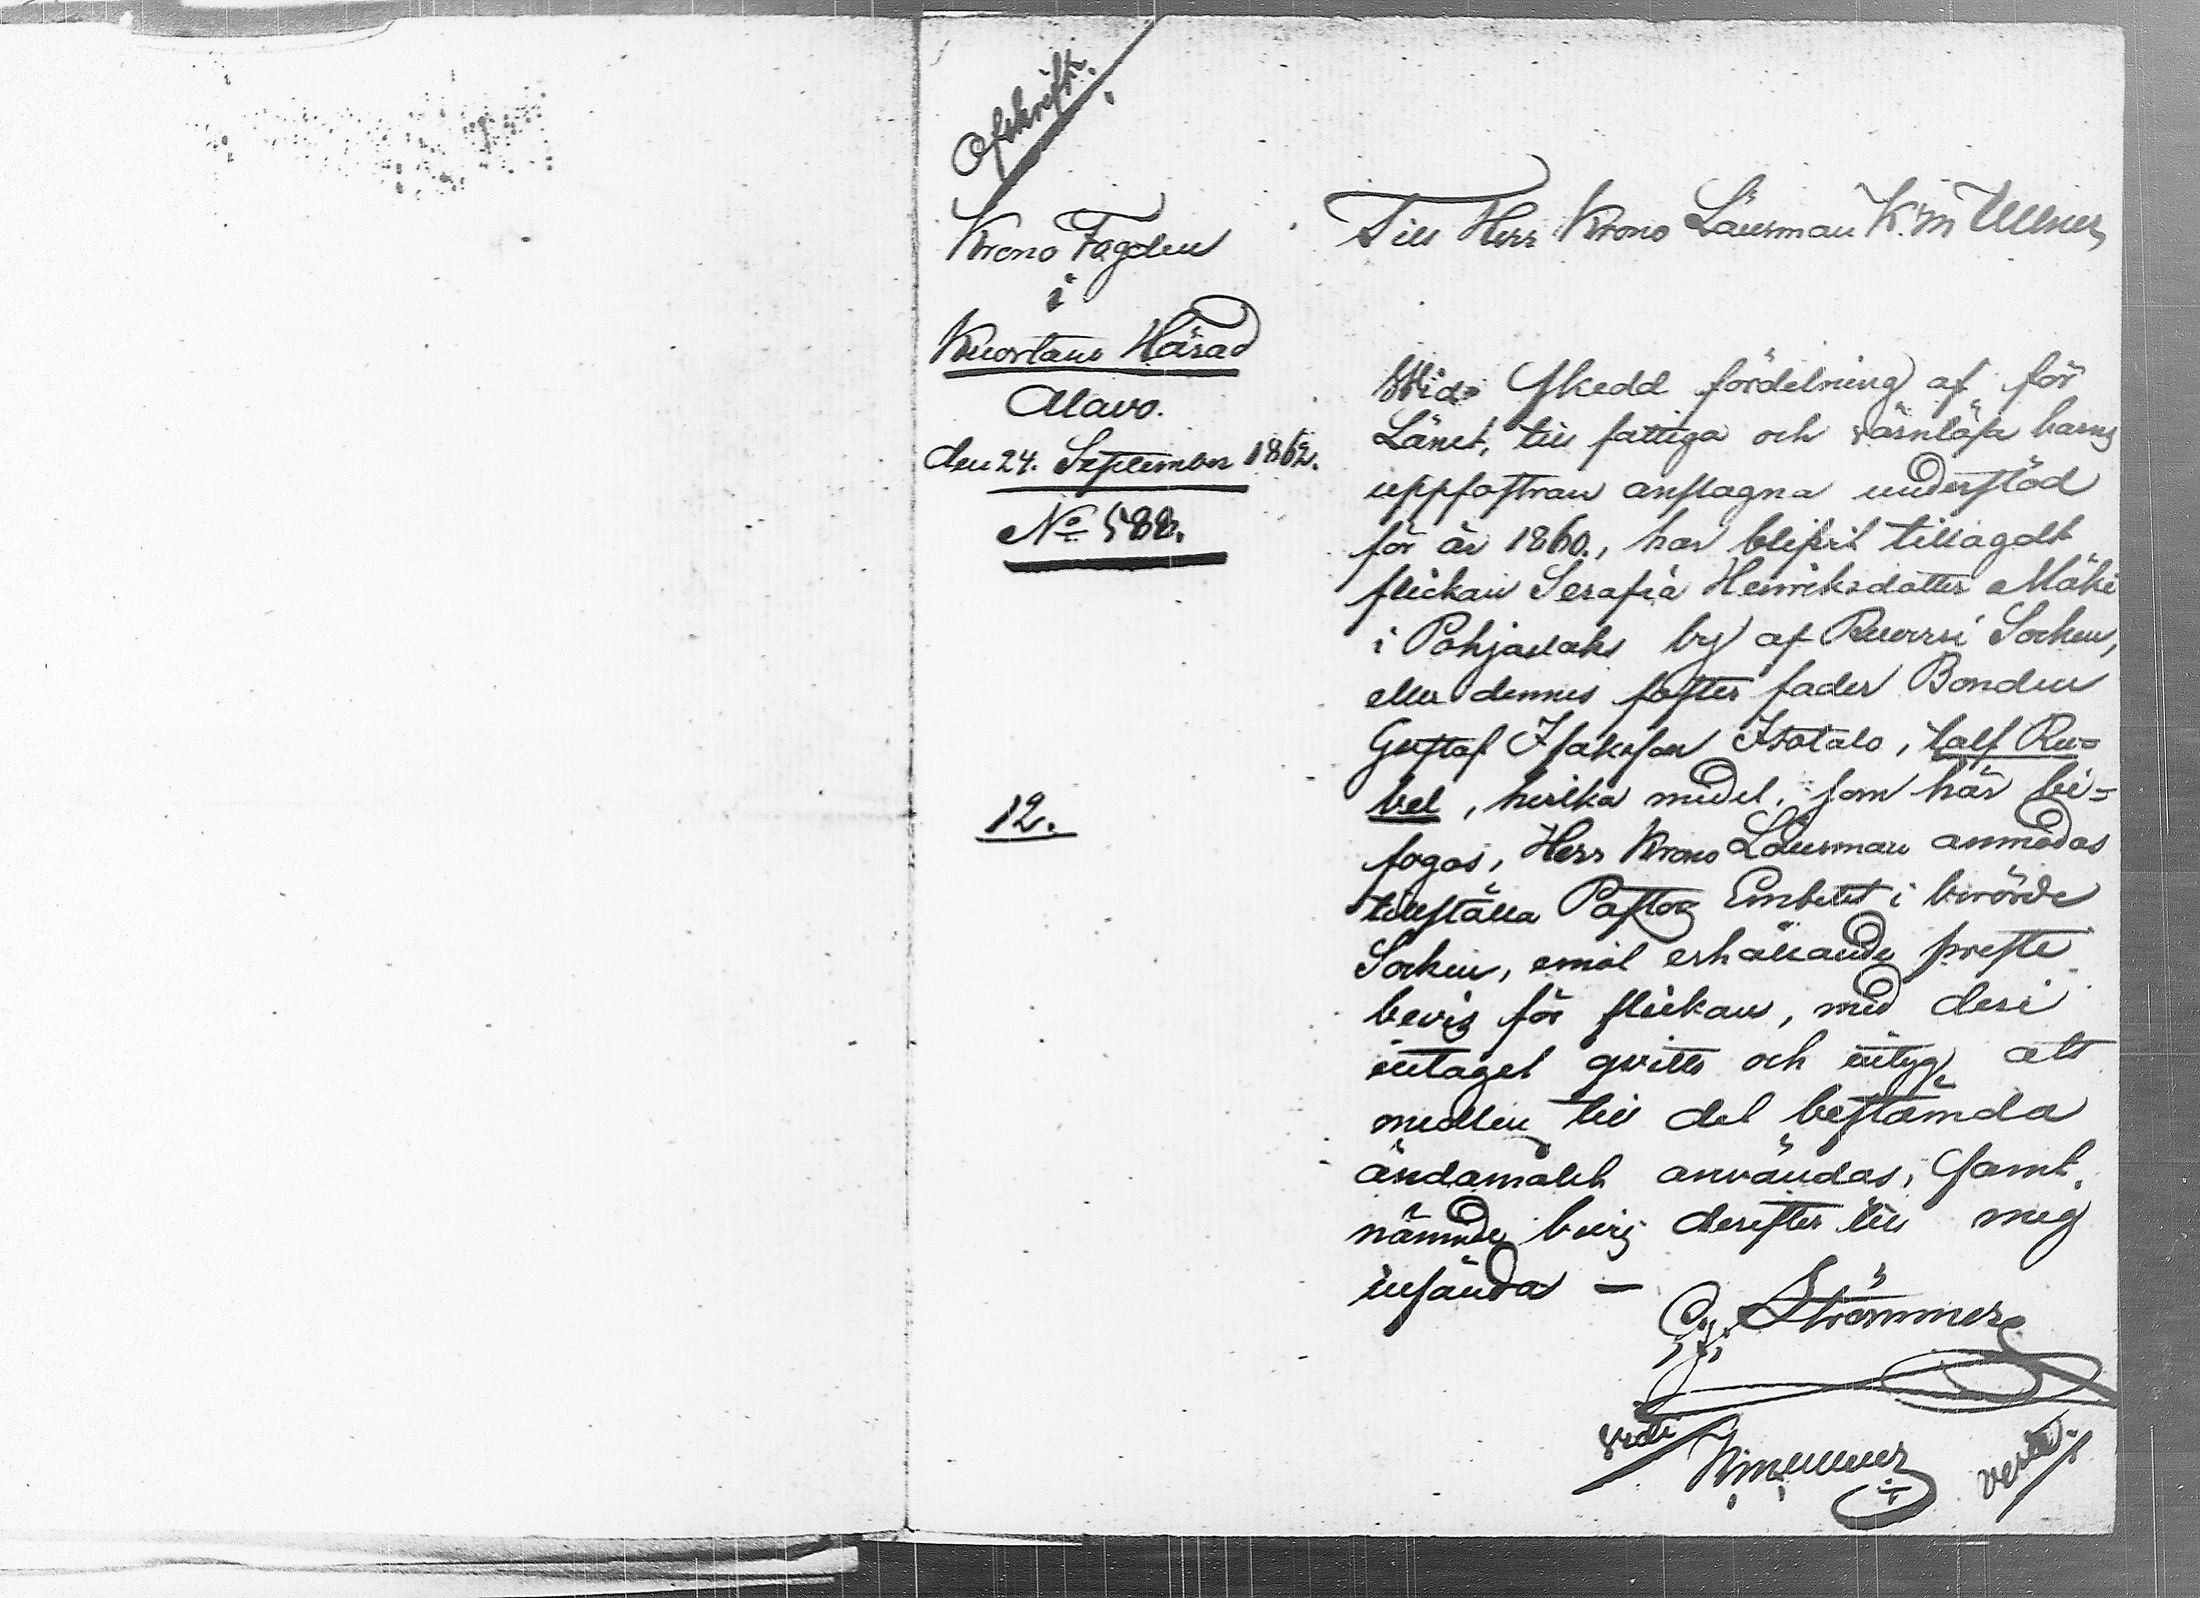 Afskrift.
Krono Fogden
i
Kuortane Härad
Alavo.
den 24. September 1862.
No 582.
12.
Till Herr Krono Länsman K.M.
Wid skedd fördelning af för
Länet, till fattiga och värnlösa barns
uppfostran anslagna understöd
för år 1860., har blifvit tillagdt
flickan Serafia Henriksdotter Mäki
i Pohjaslaks by af Ruovesi Socken,
eller dennes foster fader Bonden
Gustaf Isaksson Isotalo, tolf Ru=
bel, hvilka medel, som här bi=
fogas, Herr Krono Länsman anmodas
tillställa Pastors Embetet i berörde
Socken, emot erhållande preste
bevis för flickan, med deri
intaget qvitto och intyg att
medlen till det bestämda
ändamålet användas, samt
nämnde bevis derefter till mig
insända —
Strömmer
vertè.